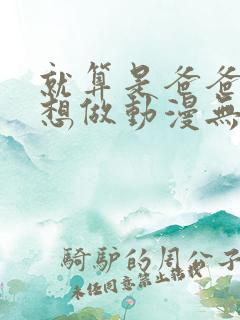 就算是爸爸
想做動漫無
騎驴的周公子
未任同意禁止转载